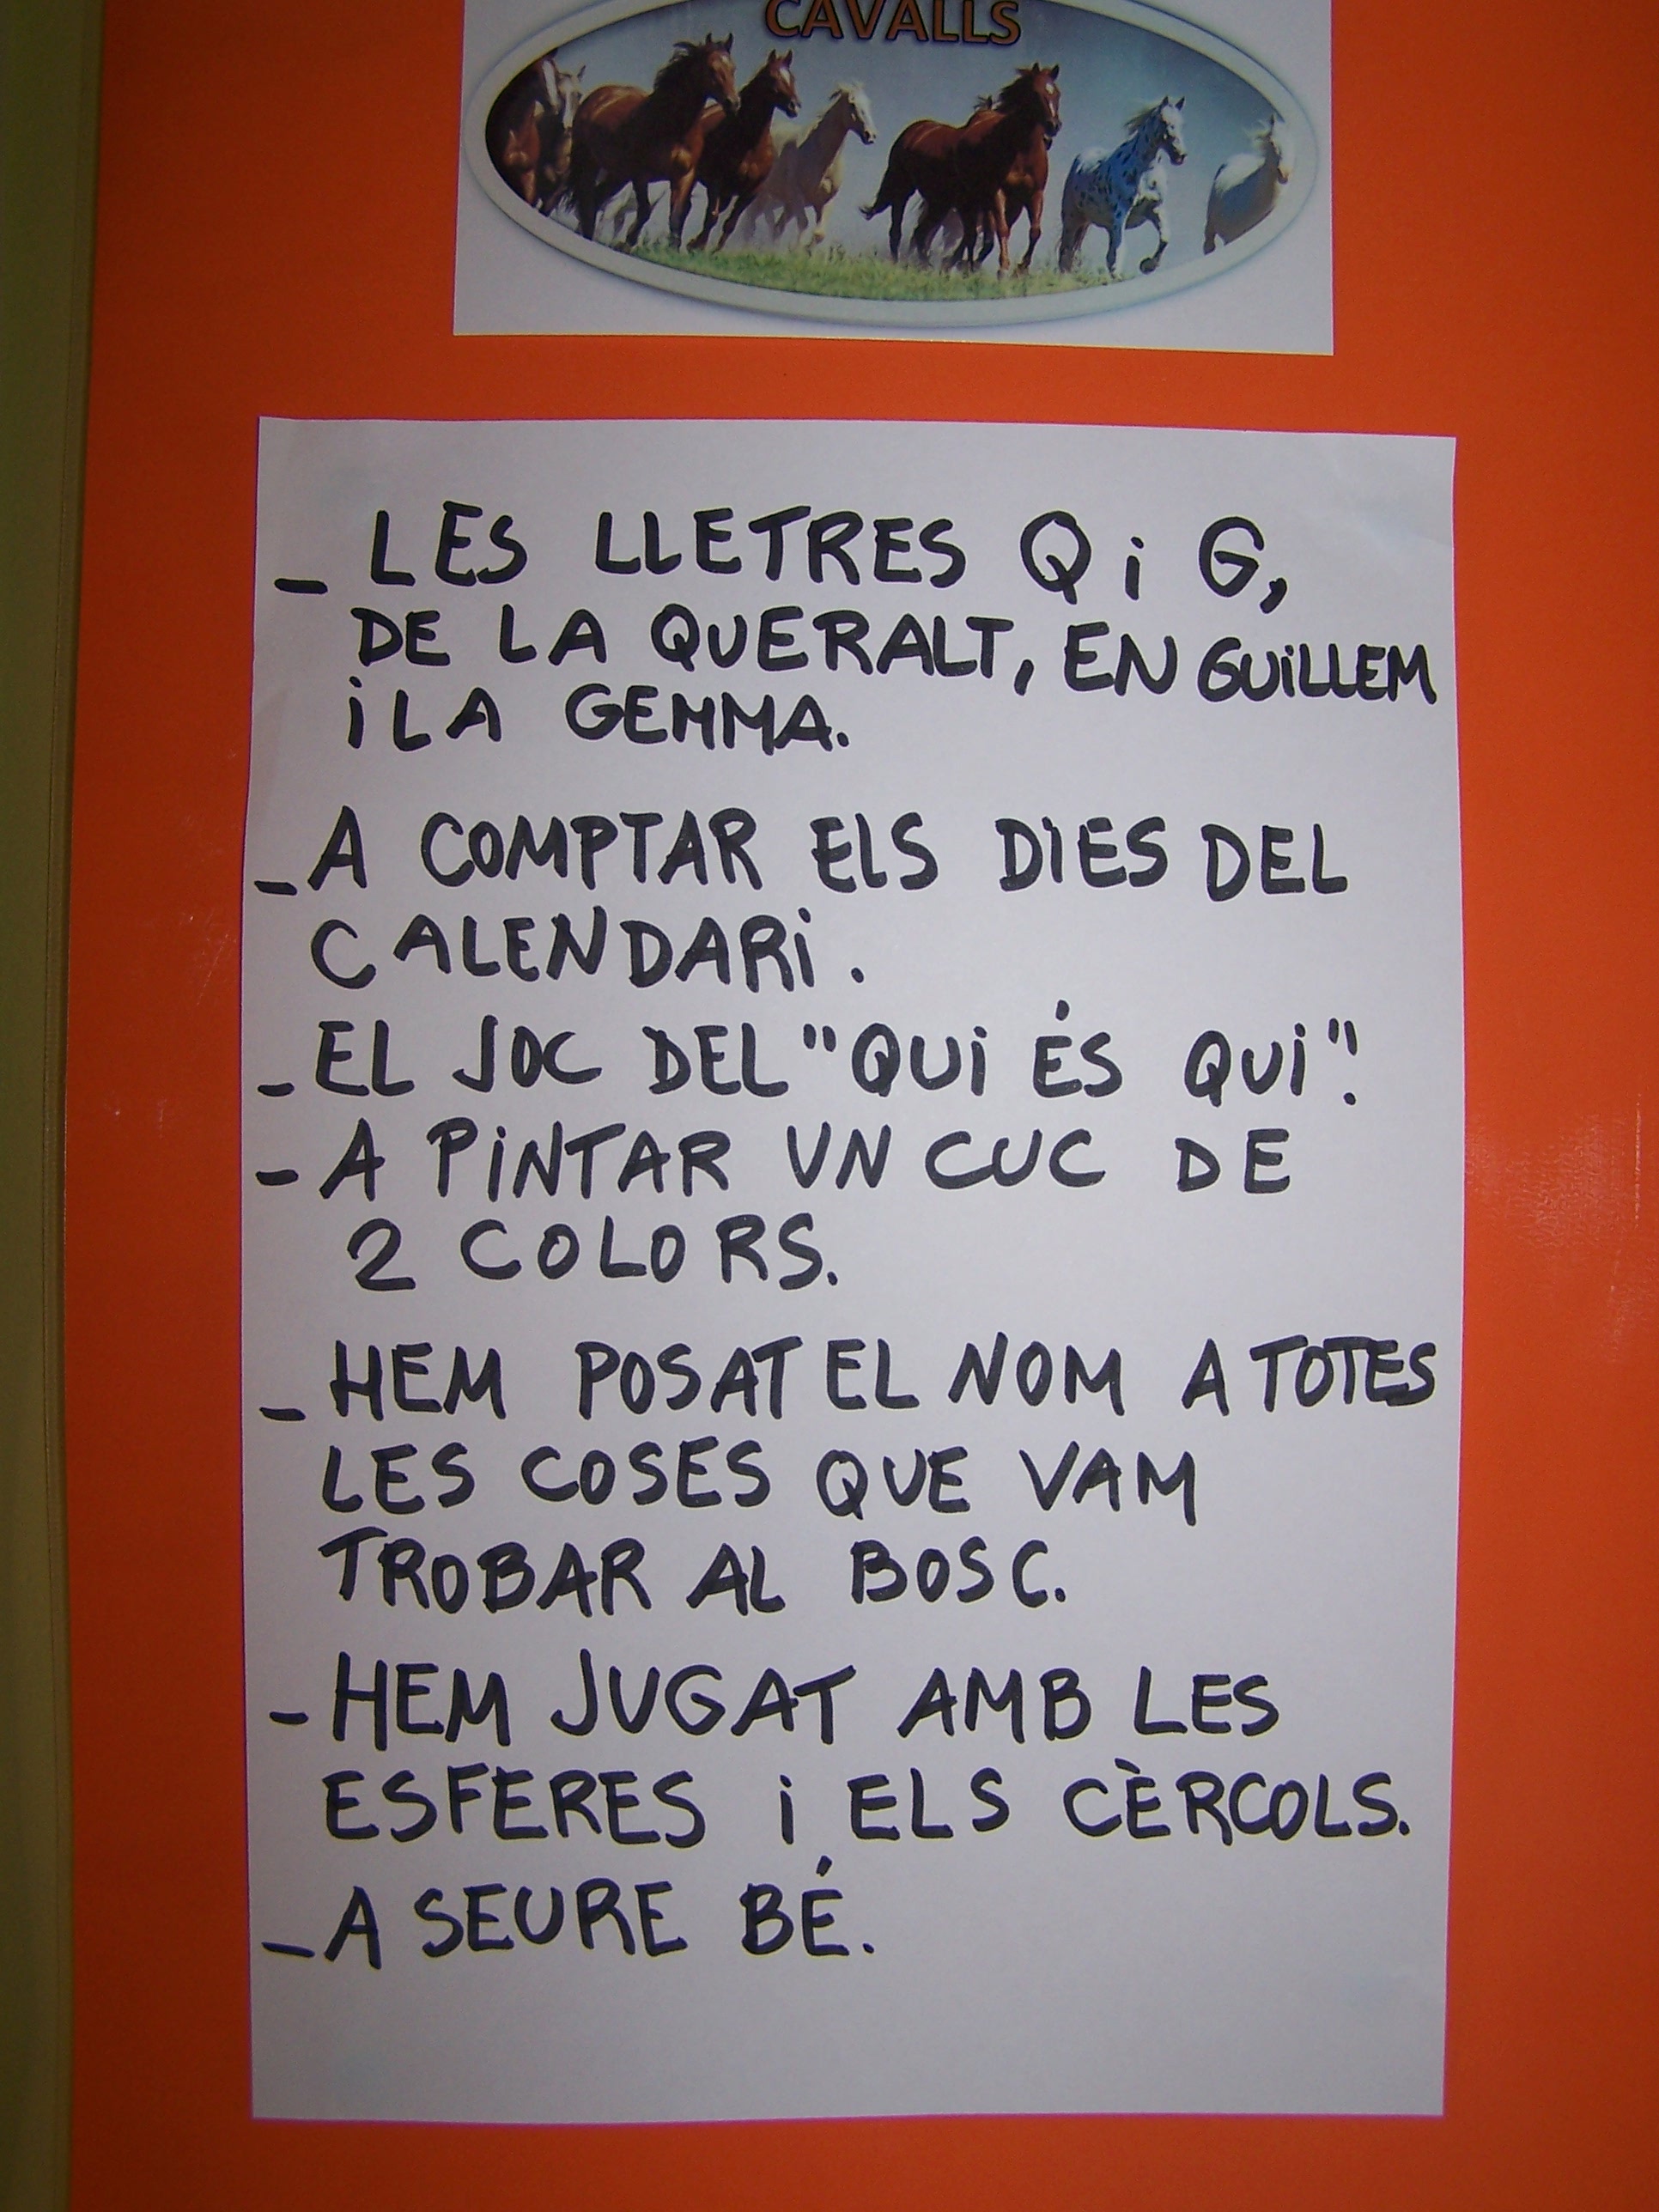 CAVALLS
_ LES LLETRES Q i G,
DE LA QUERALT, EN GUiLLEM
i LA GEMMA.
_ A COMPTAR ELS DIES DEL
CALENDARi.
_ EL JOC DEL "QUi ÉS QUi".
- A PiNTAR UN CUC DE
2 COLORS.
_ HEM POSAT EL NOM A TOTES
LES COSES QUE VAM
TROBAR AL BOSC.
- HEM JUGAT AMB LES
ESFERES i ELS CÈRCOLS.
_ A SEURE BÉ.